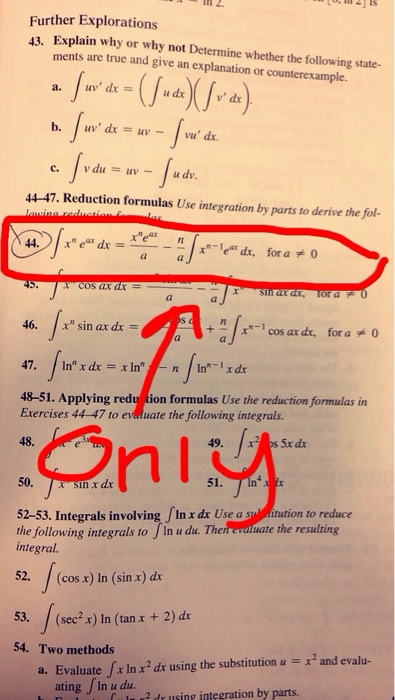 Further Explorations
43. Explain why or why not Determine whether the following state-
ments are true and give an explanation or counterexample.
a. ∫ uv′ dx = (∫ u dx)(∫ v′ dx).
b. ∫ uv′ dx = uv − ∫ vu′ dx.
c. ∫ v du = uv − ∫ u dv.
44–47. Reduction formulas Use integration by parts to derive the fol-
lowing reduction formulas
44. ∫ xⁿ eᵃˣ dx = xⁿeᵃˣ/a − n/a ∫ xⁿ⁻¹eᵃˣ dx, for a ≠ 0
45. ∫ xⁿ cos ax dx = a − a ∫ sin ax dx, for a ≠ 0
46. ∫ xⁿ sin ax dx = a + n/a ∫ xⁿ⁻¹ cos ax dx, for a ≠ 0
47. ∫ lnⁿ x dx = x lnⁿ − n ∫ lnⁿ⁻¹ x dx
48–51. Applying reduction formulas Use the reduction formulas in
Exercises 44–47 to evaluate the following integrals.
48. 49. ∫ 5x dx
only
50. ∫ sin x dx 51. ∫ ln⁴ x dx
52–53. Integrals involving ∫ ln x dx Use a substitution to reduce
the following integrals to ∫ ln u du. Then evaluate the resulting
integral.
52. ∫ (cos x) ln (sin x) dx
53. ∫ (sec² x) ln (tan x + 2) dx
54. Two methods
a. Evaluate ∫ x ln x² dx using the substitution u = x² and evalu-
ating ∫ ln u du.
dx using integration by parts.